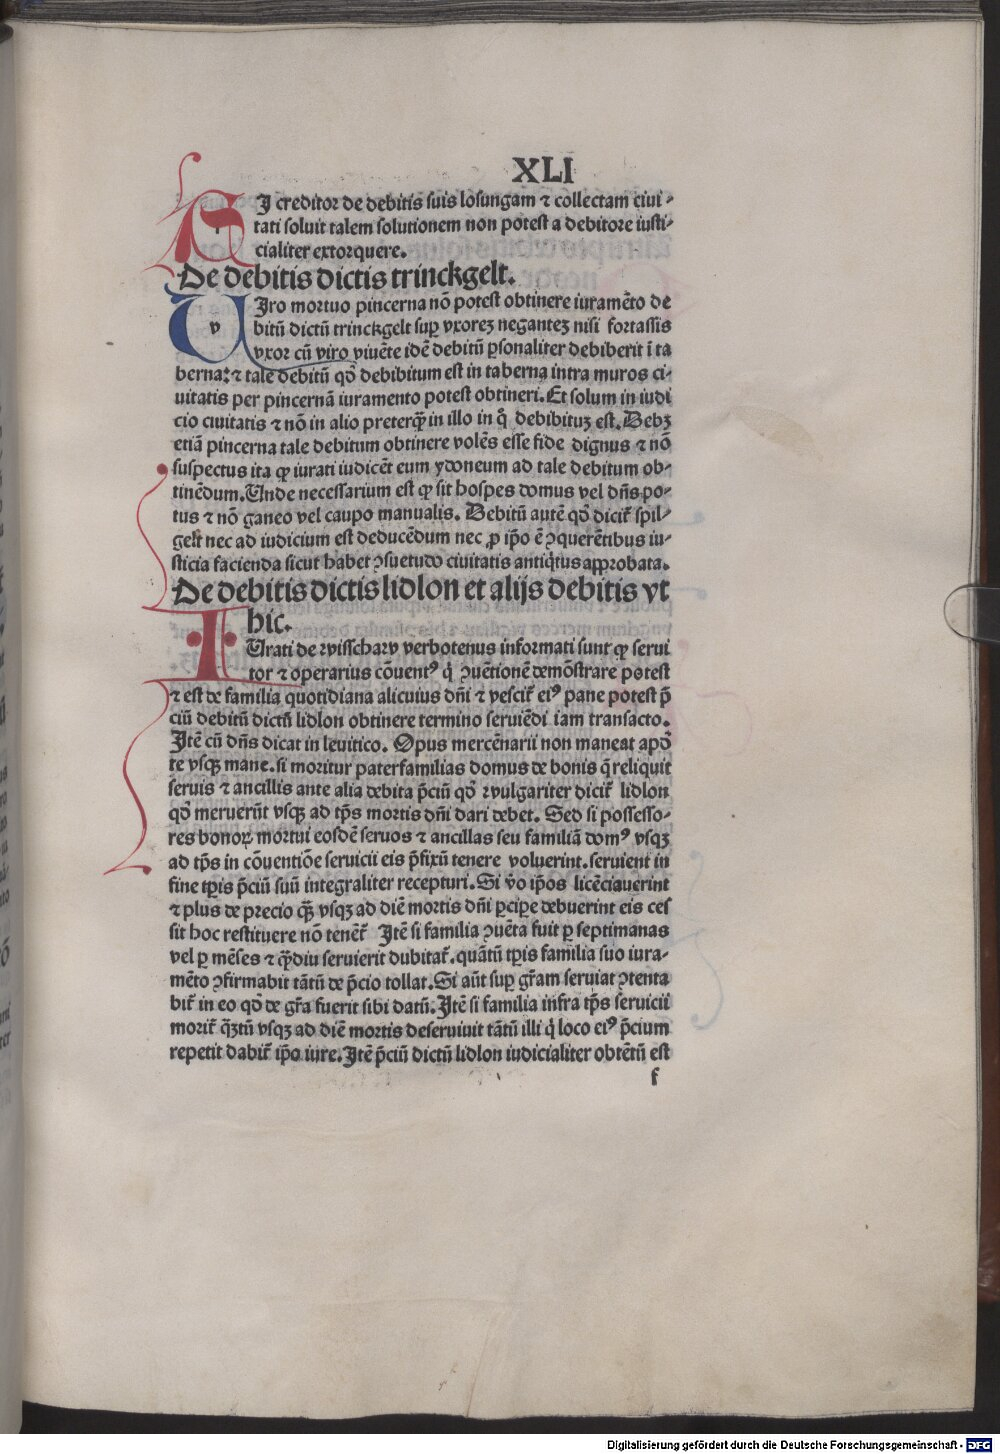 XLI
SI creditor de debitis suis losungam ⁊ collectam ciui⸗
tati soluit talem solutionem non potest a debitore iusti⸗
cialiter extorquere.
De debitis dictis trinckgelt.
UIro mortuo pincerna nō potest obtinere iuramēto de
bitū dictū trinckgelt suꝑ vxoreꝫ neganteꝫ nisi fortassis
vxor cū viro viuēte idē debitū ꝑsonaliter debiberit ī ta
berna: ⁊ tale debitū qđ debibitum est in taberna intra muros ci⸗
uitatis per pincernā iuramento potest obtineri. Et solum in iudi
cio ciuitatis ⁊ nō in alio preterq̄ꝫ in illo in q̊ debibituꝫ est. Debꝫ
etiā pincerna tale debitum obtinere volēs esse fide dignus ⁊ nō
suspectus ita ꝙ iurati iudicēt eum ydoneum ad tale debitum ob⸗
tinēdum. Unde necessarium est ꝙ sit hospes domus vel dn̄s po⸗
tus ⁊ nō ganeo vel caupo manualis. Debitū autē qđ dicit᷑ spil⸗
gelt nec ad iudicium est deducēdum nec ꝓ ip̄o ē ꝯquerētibus iu⸗
sticia facienda sicut habet ꝯsuetudo ciuitatis antiq̇tus aꝓprobata.
De debitis dictis lidlon et alijs debitis vt
hic.
IUrati de rvisscharv verbotenus informati sunt ꝙ serui
tor ⁊ operarius cōuentꝰ q̇ ꝯuētionē demōstrare potest
⁊ est de familia quotidiana alicuius dn̄i ⁊ vescit᷑ eiꝰ pane potest p̄
ciū debitū dictū lidlon obtinere termino seruiēdi iam transacto.
Itē cū dn̄s dicat in leuitico. Opus mercēnarii non maneat apđ
te vsqꝫ mane. si moritur paterfamilias domus de bonis q̄ reliquit
seruis ⁊ ancillis ante alia debita p̄ciū qđ rvulgariter dicit᷑ lidlon
qđ meruerūt vsqꝫ ad tp̄s mortis dn̄i dari debet. Sed si possesso⸗
res bonoꝝ mortui eosdē seruos ⁊ ancillas seu familiā domꝰ vsqꝫ
ad tp̄s in cōuentiōe seruicii eis p̄fixū tenere voluerint. seruient in
fine tꝑis p̄ciū suū integraliter recepturi. Si v̄o ip̄os licēciauerint
⁊ plus de precio q̄ꝫ vsqꝫ ad diē mortis dn̄i ꝑciꝑe debuerint eis ces
sit hoc restituere nō tenēt᷑ Itē si familia ꝯuēta fuit ꝑ septimanas
vel ꝑ mēses ⁊ q̄ꝫdiu seruierit dubitat᷑. quātū tꝑis familia suo iura⸗
mēto ꝯfirmabit tātū de p̄cio tollat. Si aūt suꝑ gr̄am seruiat ꝯtenta
bit᷑ in eo qđ de gr̄a fuerit sibi datū. Itē si familia infra tp̄s seruicii
morit᷑ q̄ꝫtū vsqꝫ ad diē mortis deseruiuit tātū illi q̇ loco eiꝰ p̄cium
repetit dabit᷑ ip̄o iure. Itē p̄ciū dictū lidlon iudicialiter obtētū est
f
Digitalisierung gefördert durch die Deutsche Forschungsgemeinschaft - DFG